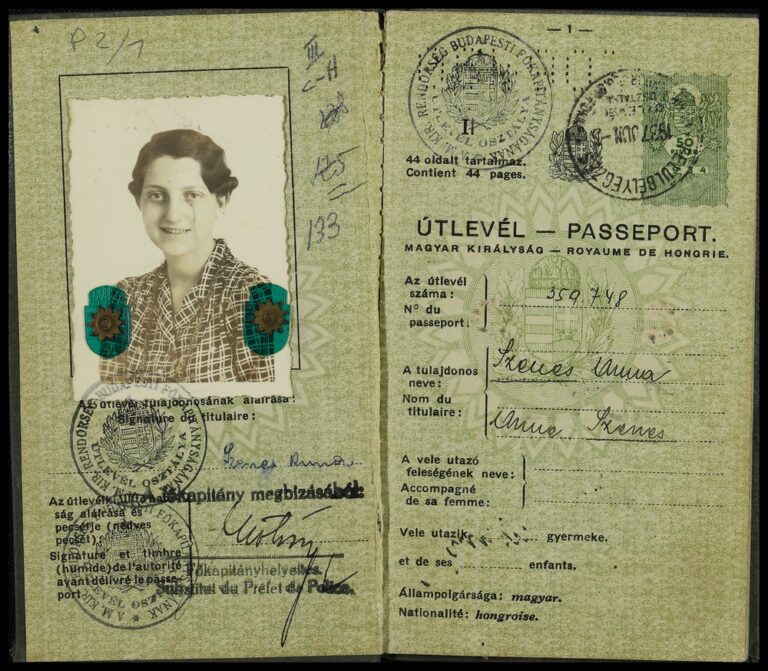 P 2/1
III
C-H
125
133
Az útlevél tulajdonosának aláírása:
Signature du titulaire:
Szenes Anna
Az útlevélkiállító ható-
ság aláírása és
pecsétje (nedves
pecsét):
Signature et timbre
(humide) de l'autorité
ayant délivré le passe-
port
Főkapitány megbizásából:
Főkapitányhelyettes.
Substitut du Préfet de Police.
A M. KIR. RENDŐRSÉG BUDAPESTI FŐKAPITÁNYSÁGÁNAK
ÚTLEVÉL OSZTÁLYA
— 1 —
A M. KIR. RENDŐRSÉG BUDAPESTI FŐKAPITÁNYSÁGÁNAK
ÚTLEVÉL OSZTÁLYA
II
1937 JUN
FELÜLBÉLYEGZ
50
44 oldalt tartalmaz.
Contient 44 pages.
ÚTLEVÉL — PASSEPORT.
MAGYAR KIRÁLYSÁG — ROYAUME DE HONGRIE.
Az útlevél
száma:
N° du
passeport:
359748
A tulajdonos
neve:
Nom du
titulaire:
Szenes Anna
Anna Szenes
A vele utazó
feleségének neve:
Accompagné
de sa femme:
Vele utazik gyermeke.
et de ses enfants.
Állampolgársága: magyar.
Nationalité: hongroise.